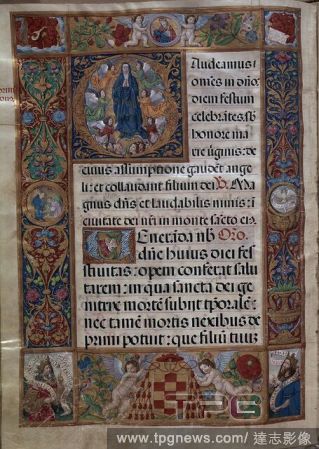 Gaudeamus
om̄es in dn̄o:
diem festum
celebrātes sb
honore ma
rie v̄ginis: de
cuius assumptione gaudēt ange
li: et collaudant filium dei. V. Ma
gnus dn̄s et laudabilis nimis: ī
ciuitate dei nr̄i in monte sācto eiꝰ.
Venerāda nb̄ Oro.
dn̄e huius diei fes
tiuitas: opem conferat salu
tarem: in qua sancta dei ge
nitrix mortē subijt tp̄oralē:
nec tamē mortis nexibus de
primi potuit: que filiū tuū
TPG
www.tpgnews.com/ 達志影像